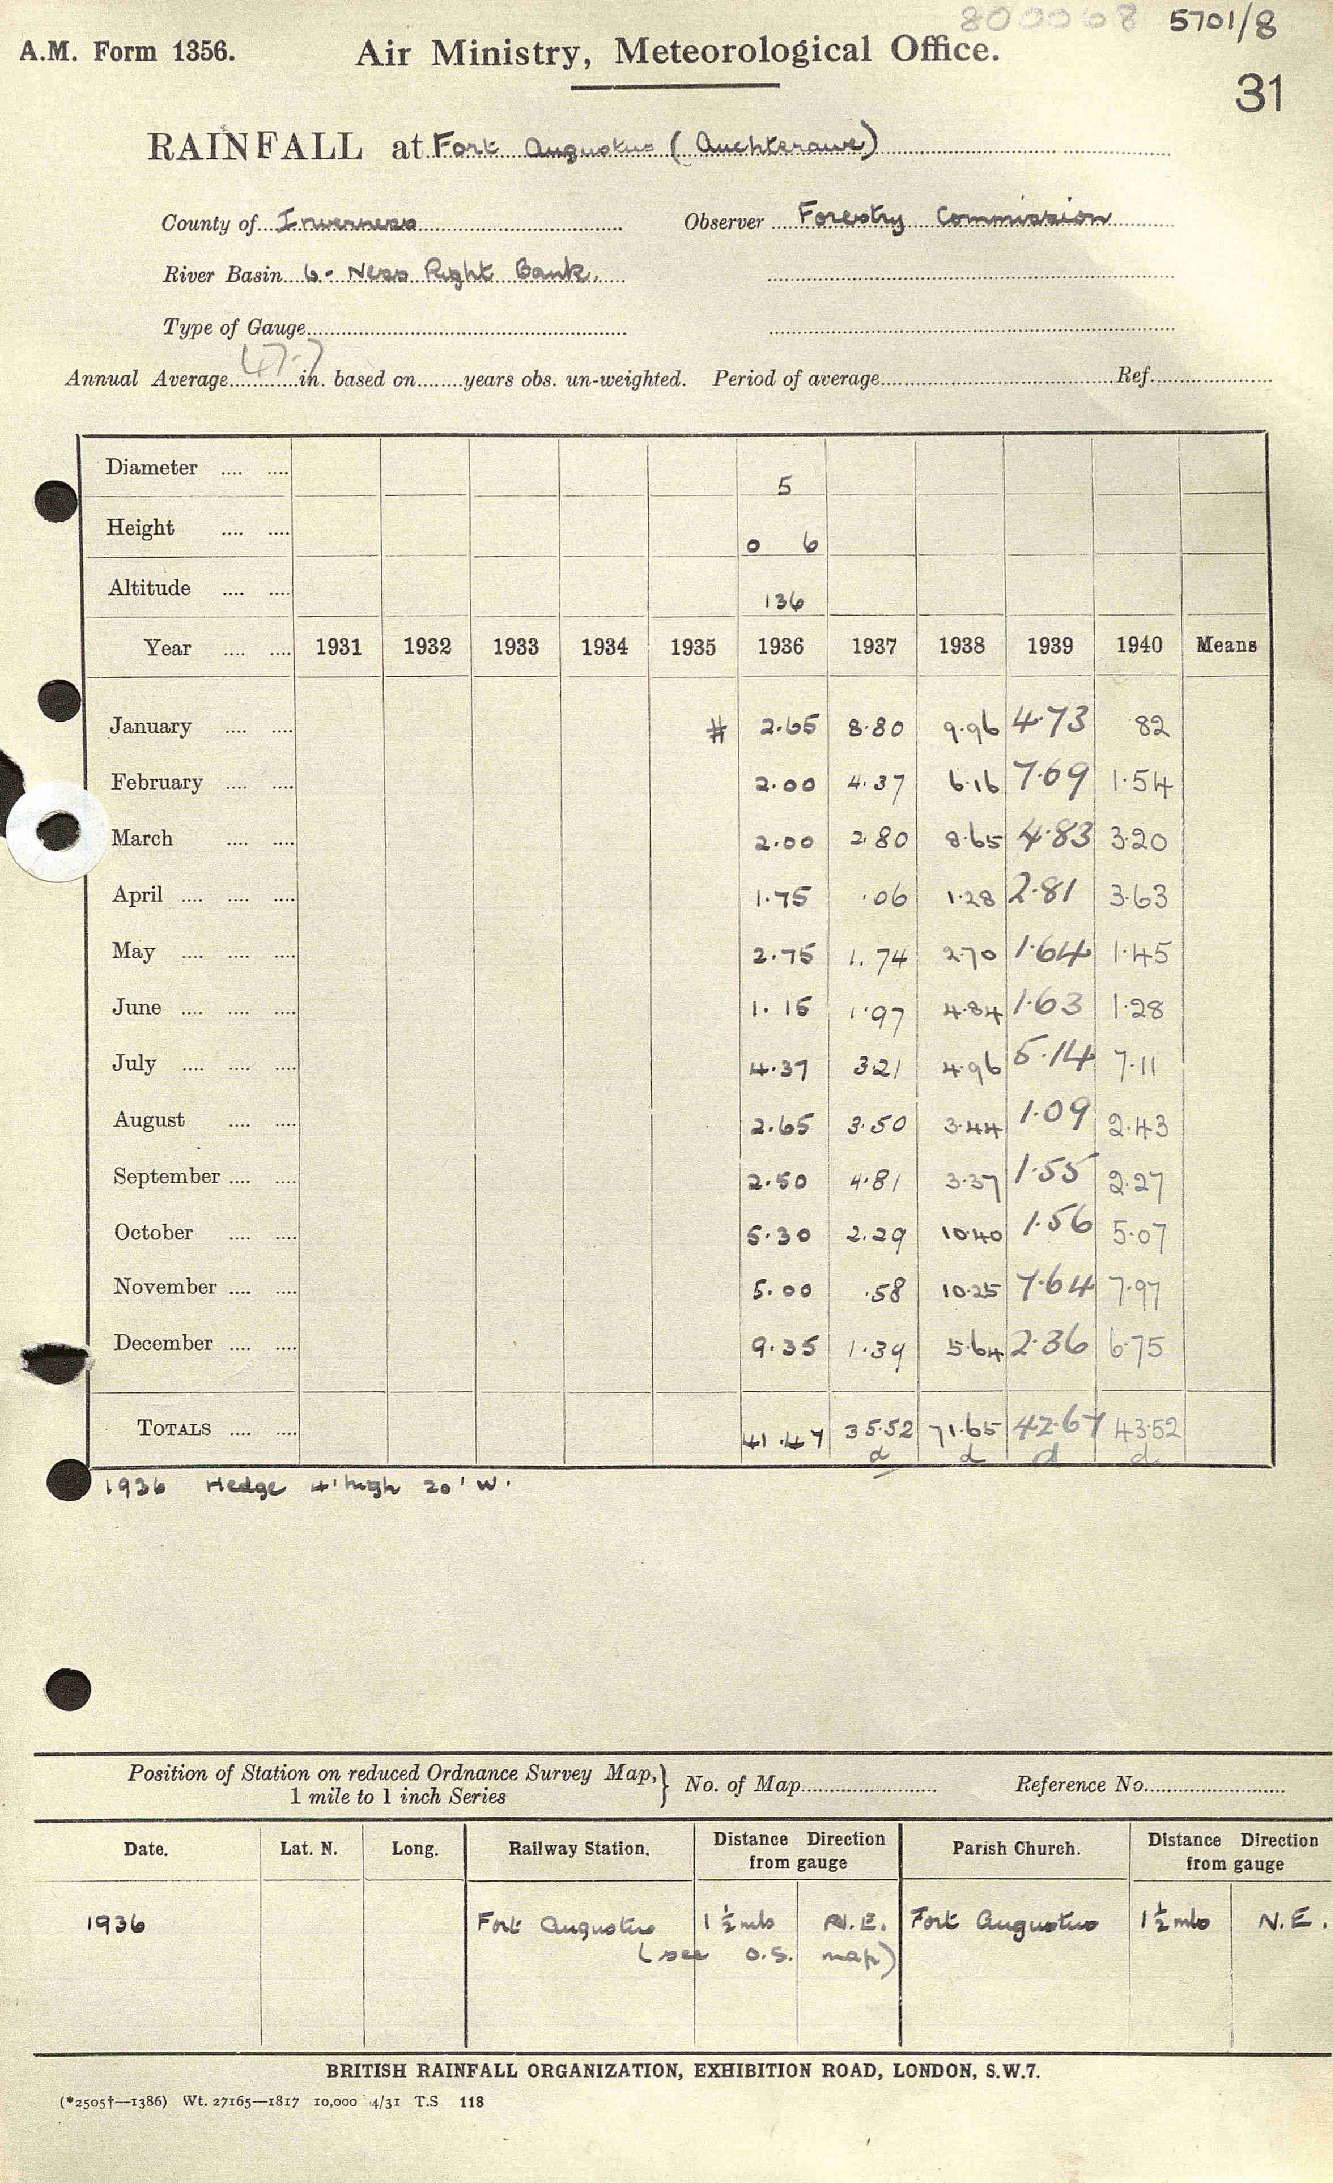 800068 5701/8
A.M. Form 1356. Air Ministry, Meteorological Office.
31
RAINFALL at Fort Augustus (Auchterawe)
County of Inverness Observer Forestry Commission
River Basin 6 - Ness Right Bank.
Type of Gauge
Annual Average 47.7 in. based on years obs. un-weighted. Period of average Ref.
Diameter 5
Height 0 6
Altitude 136
Year 1931 1932 1933 1934 1935 1936 1937 1938 1939 1940 Means
January # 2.65 8.80 9.96 4.73 .82
February 2.00 4.37 6.16 7.69 1.54
March 2.00 2.80 8.65 4.83 3.20
April 1.75 .06 1.28 2.81 3.63
May 2.75 1.74 2.70 1.64 1.45
June 1.15 1.97 4.84 1.63 1.28
July 4.37 3.21 4.96 5.14 7.11
August 2.65 3.50 3.44 1.09 2.43
September 2.50 4.81 3.37 1.55 2.27
October 5.30 2.29 10.40 1.56 5.07
November 5.00 .58 10.25 7.64 7.97
December 9.35 1.39 5.64 2.36 6.75
TOTALS 41.47 35.52 71.65 42.67 43.52
d d d d
1936 Hedge 4' high 20' W.
Position of Station on reduced Ordnance Survey Map,} No. of Map Reference No.
1 mile to 1 inch Series
Date. Lat. N. Long. Railway Station. Distance Direction from gauge Parish Church. Distance Direction from gauge
1936 Fort Augustus 1½ mls N.E. Fort Augustus 1½ mls N.E.
(see O.S. map)
BRITISH RAINFALL ORGANIZATION, EXHIBITION ROAD, LONDON, S.W.7.
(*2505†—1386) Wt. 27165—1817 10,000 4/31 T.S 118